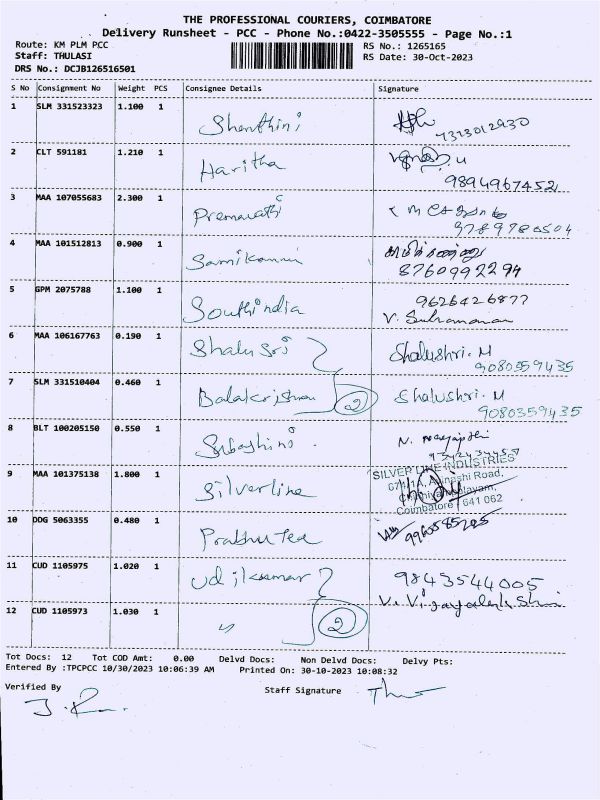 THE PROFESSIONAL COURIERS, COIMBATORE
Delivery Runsheet - PCC - Phone No.:0422-3505555 - Page No.:1
Route: KM PLM PCC
RS No.: 1265165
Staff: THULASI
RS Date: 30-Oct-2023
DRS No.: DCJB126516501
S No Consignment No Weight PCS Consignee Details Signature
1 SLM 331523323 1.100 1 Shanthini
7373012930
2 CLT 591181 1.210 1 Haritha
9894967452
3 MAA 107055683 2.300 1 Premavathi
9789780504
4 MAA 101512813 0.900 1 Samikannu
8760992294
5 GPM 2075788 1.100 1 Southindia 9626426877
V. Subramanian
6 MAA 106167763 0.190 1 Shalu Sri Shalushri. M
9080559435
7 SLM 331510404 0.460 1 Balakrishnan 2 Shalushri. M
9080359435
8 BLT 100205150 0.550 1 Subashini N.
9 MAA 101375138 1.800 1 Silverline SILVER LINE INDUSTRIES
674/1A, Avinashi Road,
Coimbatore - 641 062
10 DDG 5063355 0.480 1 Prabhu Tea
11 CUD 1105975 1.020 1 udjkumar 9843544005
V. Vijayalakshmi
12 CUD 1105973 1.030 1 " 2
Tot Docs: 12 Tot COD Amt: 0.00 Delvd Docs: Non Delvd Docs: Delvy Pts:
Entered By :TPCPCC 10/30/2023 10:06:39 AM Printed On: 30-10-2023 10:08:32
Verified By Staff Signature